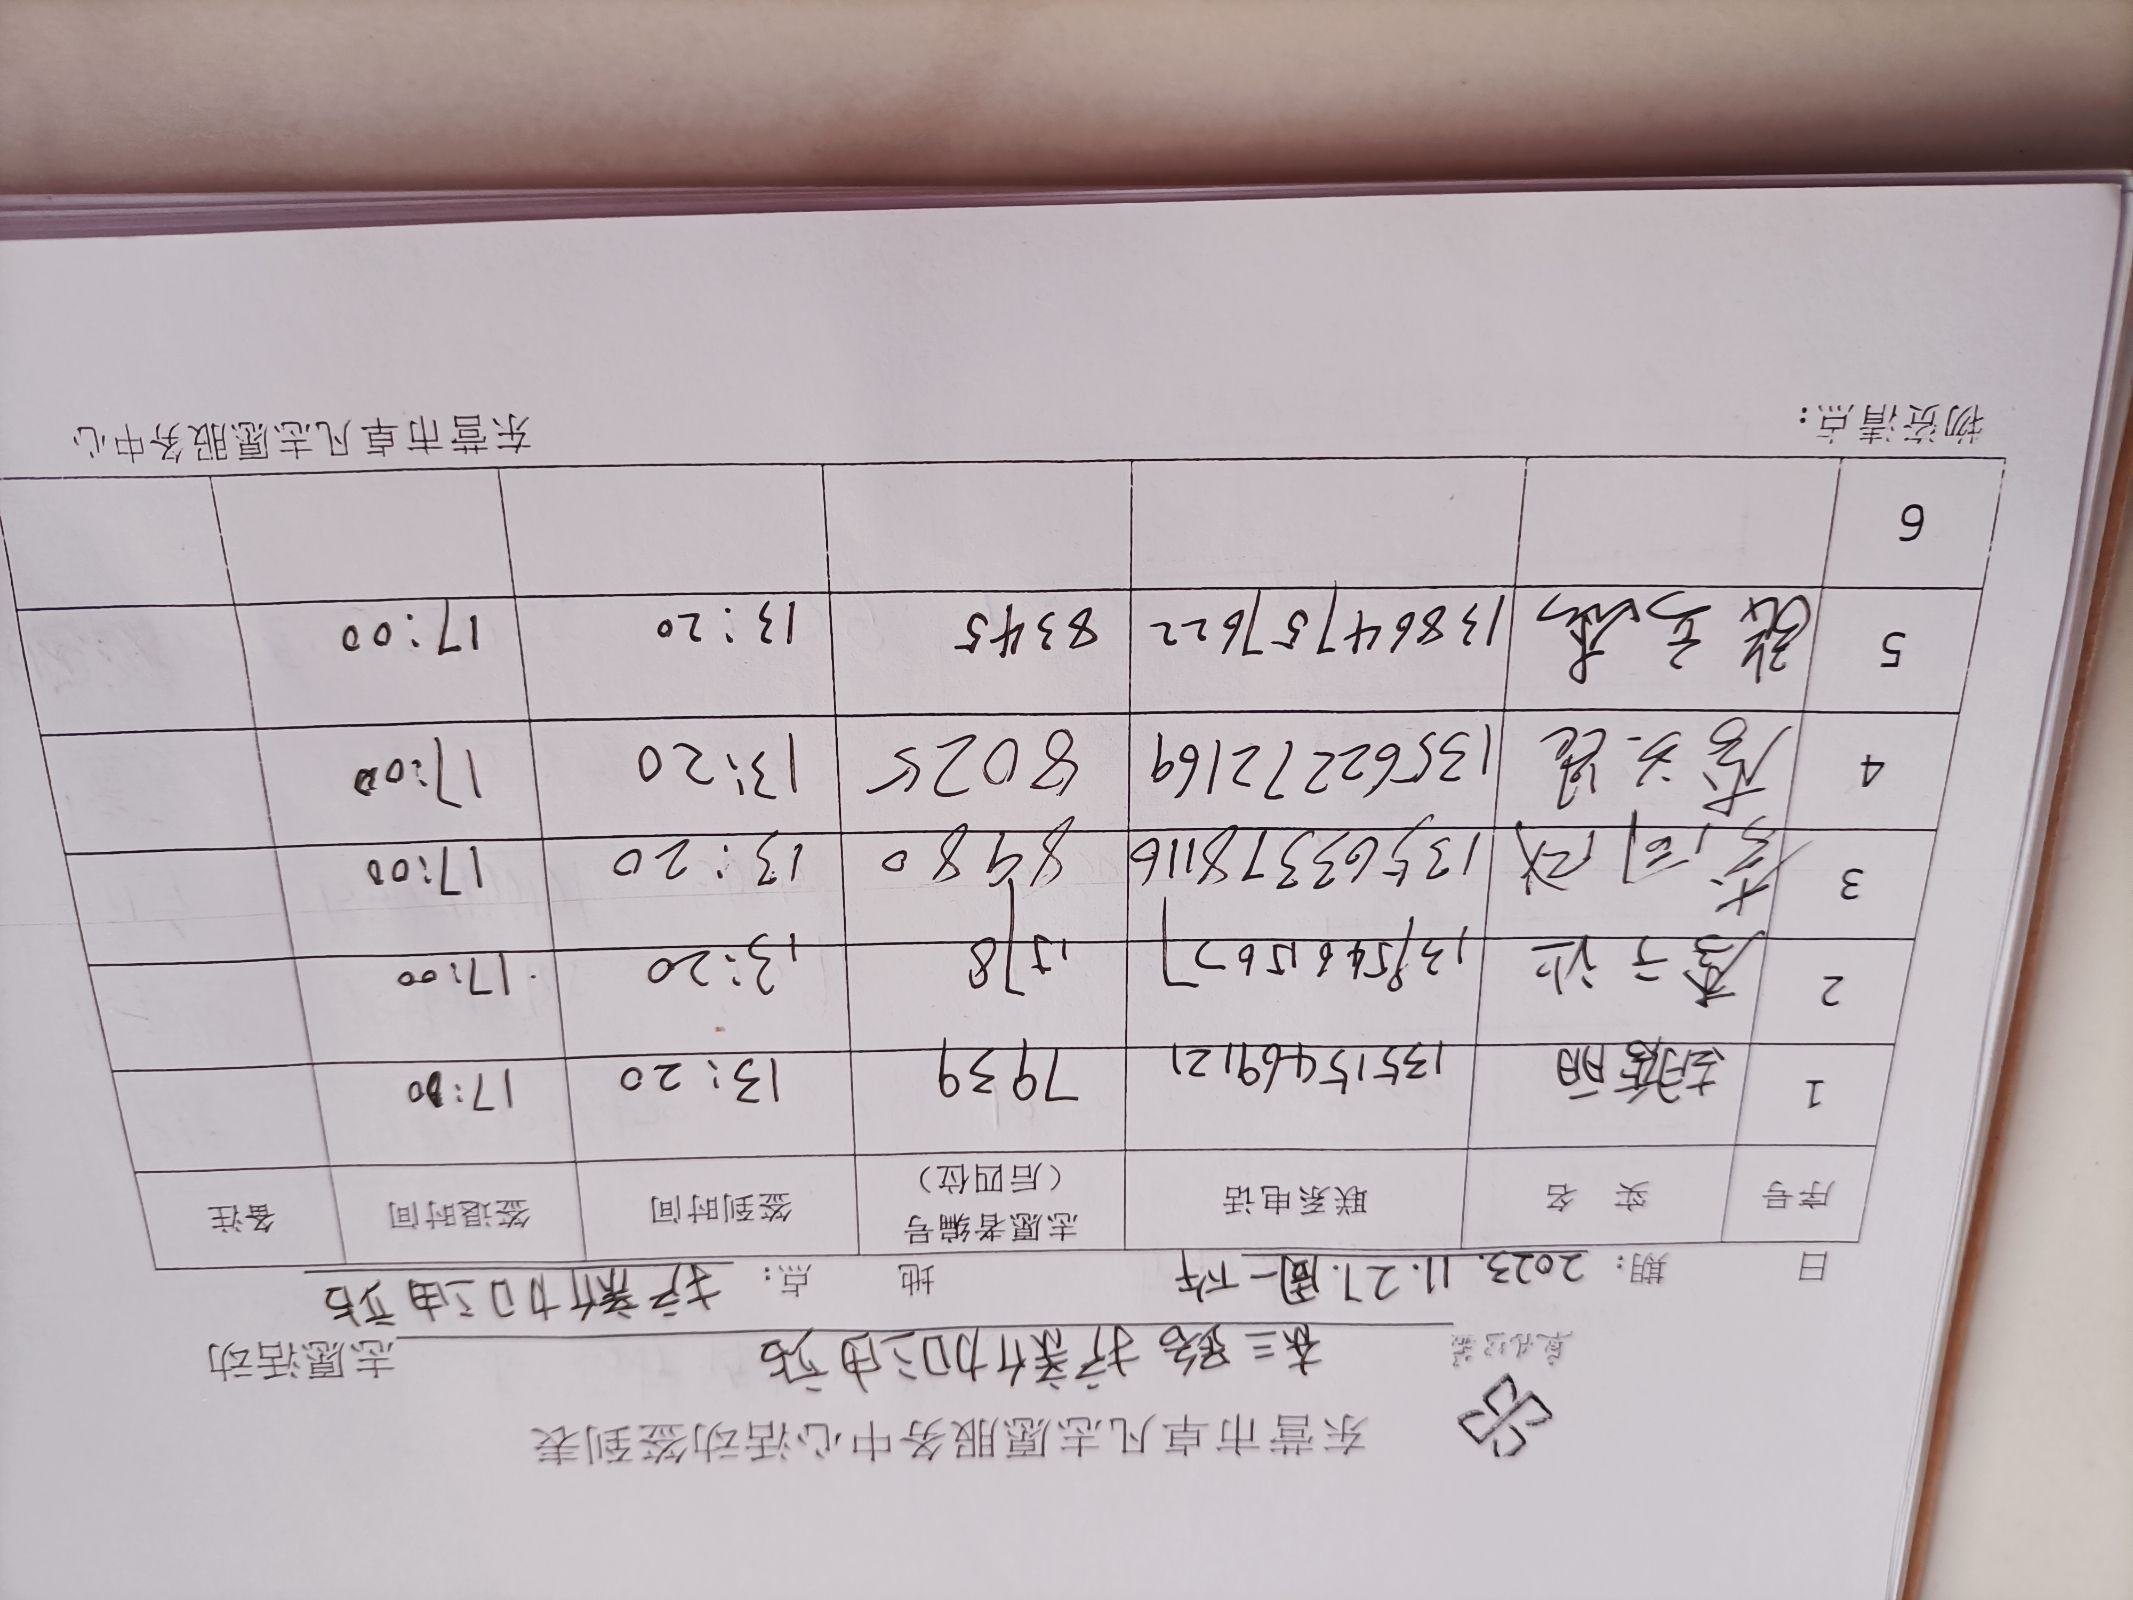 东营市卓凡志愿服务中心活动签到表
东三路 护亲什加油站 志愿活动
日 期：2023.11.27.周一下午 地 点：护亲什加油站
序号 实 名 联系电话 志愿者编号（后四位） 签到时间 签退时间 备注
1 胡秀丽 13515469121 7939 13:20 17:00
2 13854615677 1578 13:20 17:00
3 13563378116 8980 13:20 17:00
4 13562272169 8025 13:20 17:00
5 13864757622 8345 13:20 17:00
6
物资清点： 东营市卓凡志愿服务中心